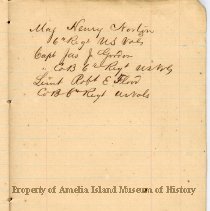 Maj Henry Norton
6th Regt US Vols
Capt Jas J. Gordon
" Co B 6th Regt US Vols
Lieut Robt E Flood
Co B 6th Regt US Vols
Property of Amelia Island Museum of History